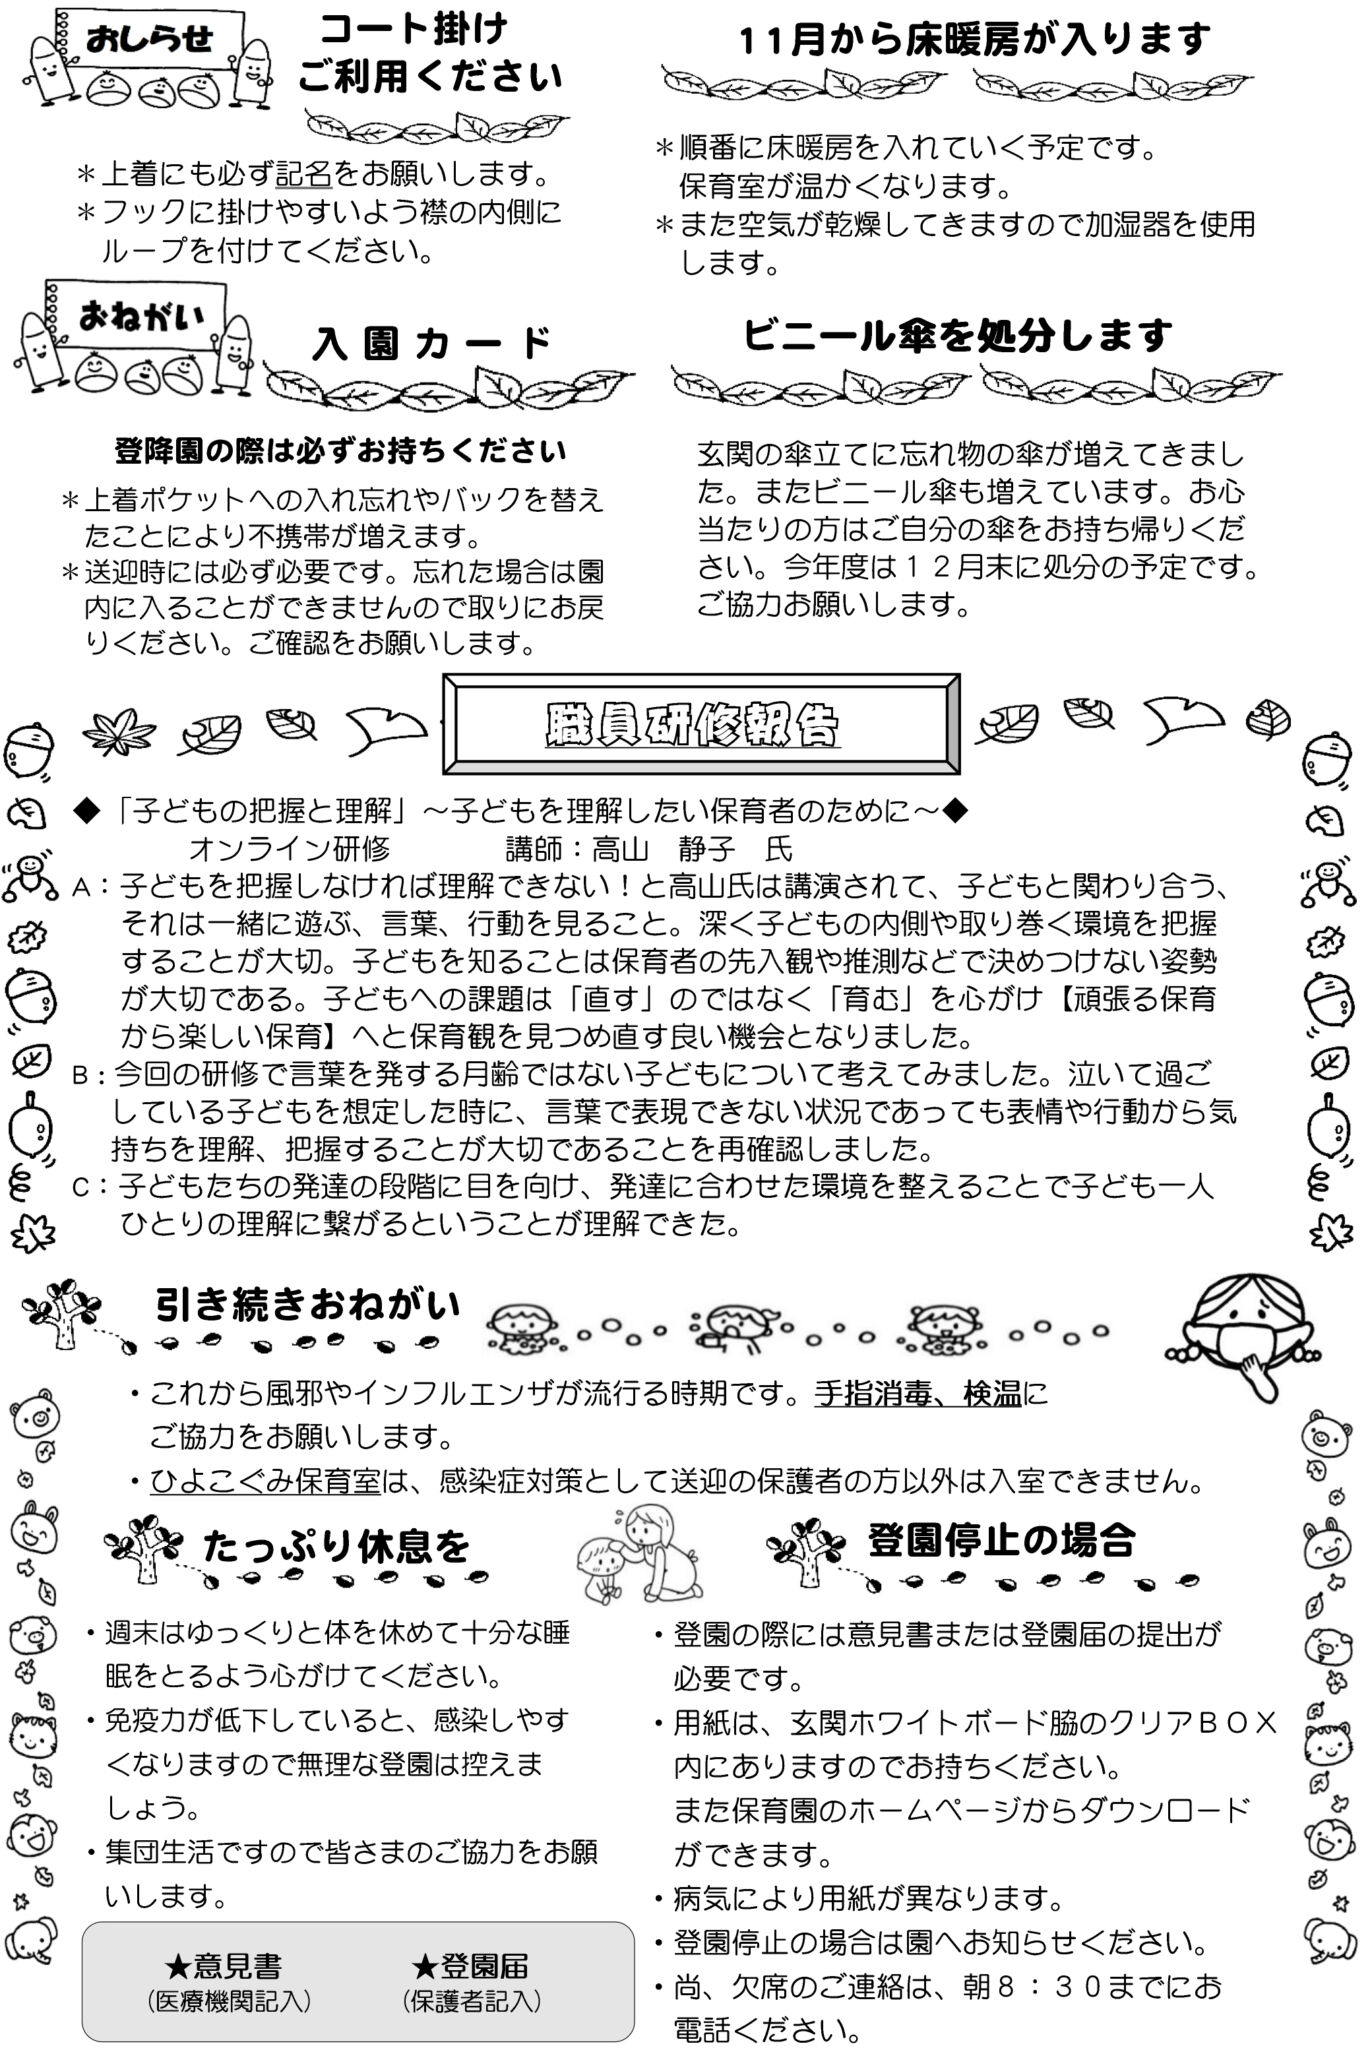 おしらせ
コート掛け
ご利用ください
＊上着にも必ず記名をお願いします。
＊フックに掛けやすいよう襟の内側に
ループを付けてください。
11月から床暖房が入ります
＊順番に床暖房を入れていく予定です。
保育室が温かくなります。
＊また空気が乾燥してきますので加湿器を使用
します。
おねがい
入園カード
登降園の際は必ずお持ちください
＊上着ポケットへの入れ忘れやバックを替え
たことにより不携帯が増えます。
＊送迎時には必ず必要です。忘れた場合は園
内に入ることができませんので取りにお戻
りください。ご確認をお願いします。
ビニール傘を処分します
玄関の傘立てに忘れ物の傘が増えてきまし
た。またビニール傘も増えています。お心
当たりの方はご自分の傘をお持ち帰りくだ
さい。今年度は１２月末に処分の予定です。
ご協力お願いします。
職員研修報告
◆「子どもの把握と理解」～子どもを理解したい保育者のために～◆
オンライン研修　講師：高山　静子　氏
A：子どもを把握しなければ理解できない！と高山氏は講演されて、子どもと関わり合う、
それは一緒に遊ぶ、言葉、行動を見ること。深く子どもの内側や取り巻く環境を把握
することが大切。子どもを知ることは保育者の先入観や推測などで決めつけない姿勢
が大切である。子どもへの課題は「直す」のではなく「育む」を心がけ【頑張る保育
から楽しい保育】へと保育観を見つめ直す良い機会となりました。
B：今回の研修で言葉を発する月齢ではない子どもについて考えてみました。泣いて過ご
している子どもを想定した時に、言葉で表現できない状況であっても表情や行動から気
持ちを理解、把握することが大切であることを再確認しました。
C：子どもたちの発達の段階に目を向け、発達に合わせた環境を整えることで子ども一人
ひとりの理解に繋がるということが理解できた。
引き続きおねがい
・これから風邪やインフルエンザが流行る時期です。手指消毒、検温に
ご協力をお願いします。
・ひよこぐみ保育室は、感染症対策として送迎の保護者の方以外は入室できません。
たっぷり休息を
・週末はゆっくりと体を休めて十分な睡
眠をとるよう心がけてください。
・免疫力が低下していると、感染しやす
くなりますので無理な登園は控えま
しょう。
・集団生活ですので皆さまのご協力をお願
いします。
★意見書　★登園届
（医療機関記入）　（保護者記入）
登園停止の場合
・登園の際には意見書または登園届の提出が
必要です。
・用紙は、玄関ホワイトボード脇のクリアＢＯＸ
内にありますのでお持ちください。
また保育園のホームページからダウンロード
ができます。
・病気により用紙が異なります。
・登園停止の場合は園へお知らせください。
・尚、欠席のご連絡は、朝８：３０までにお
電話ください。